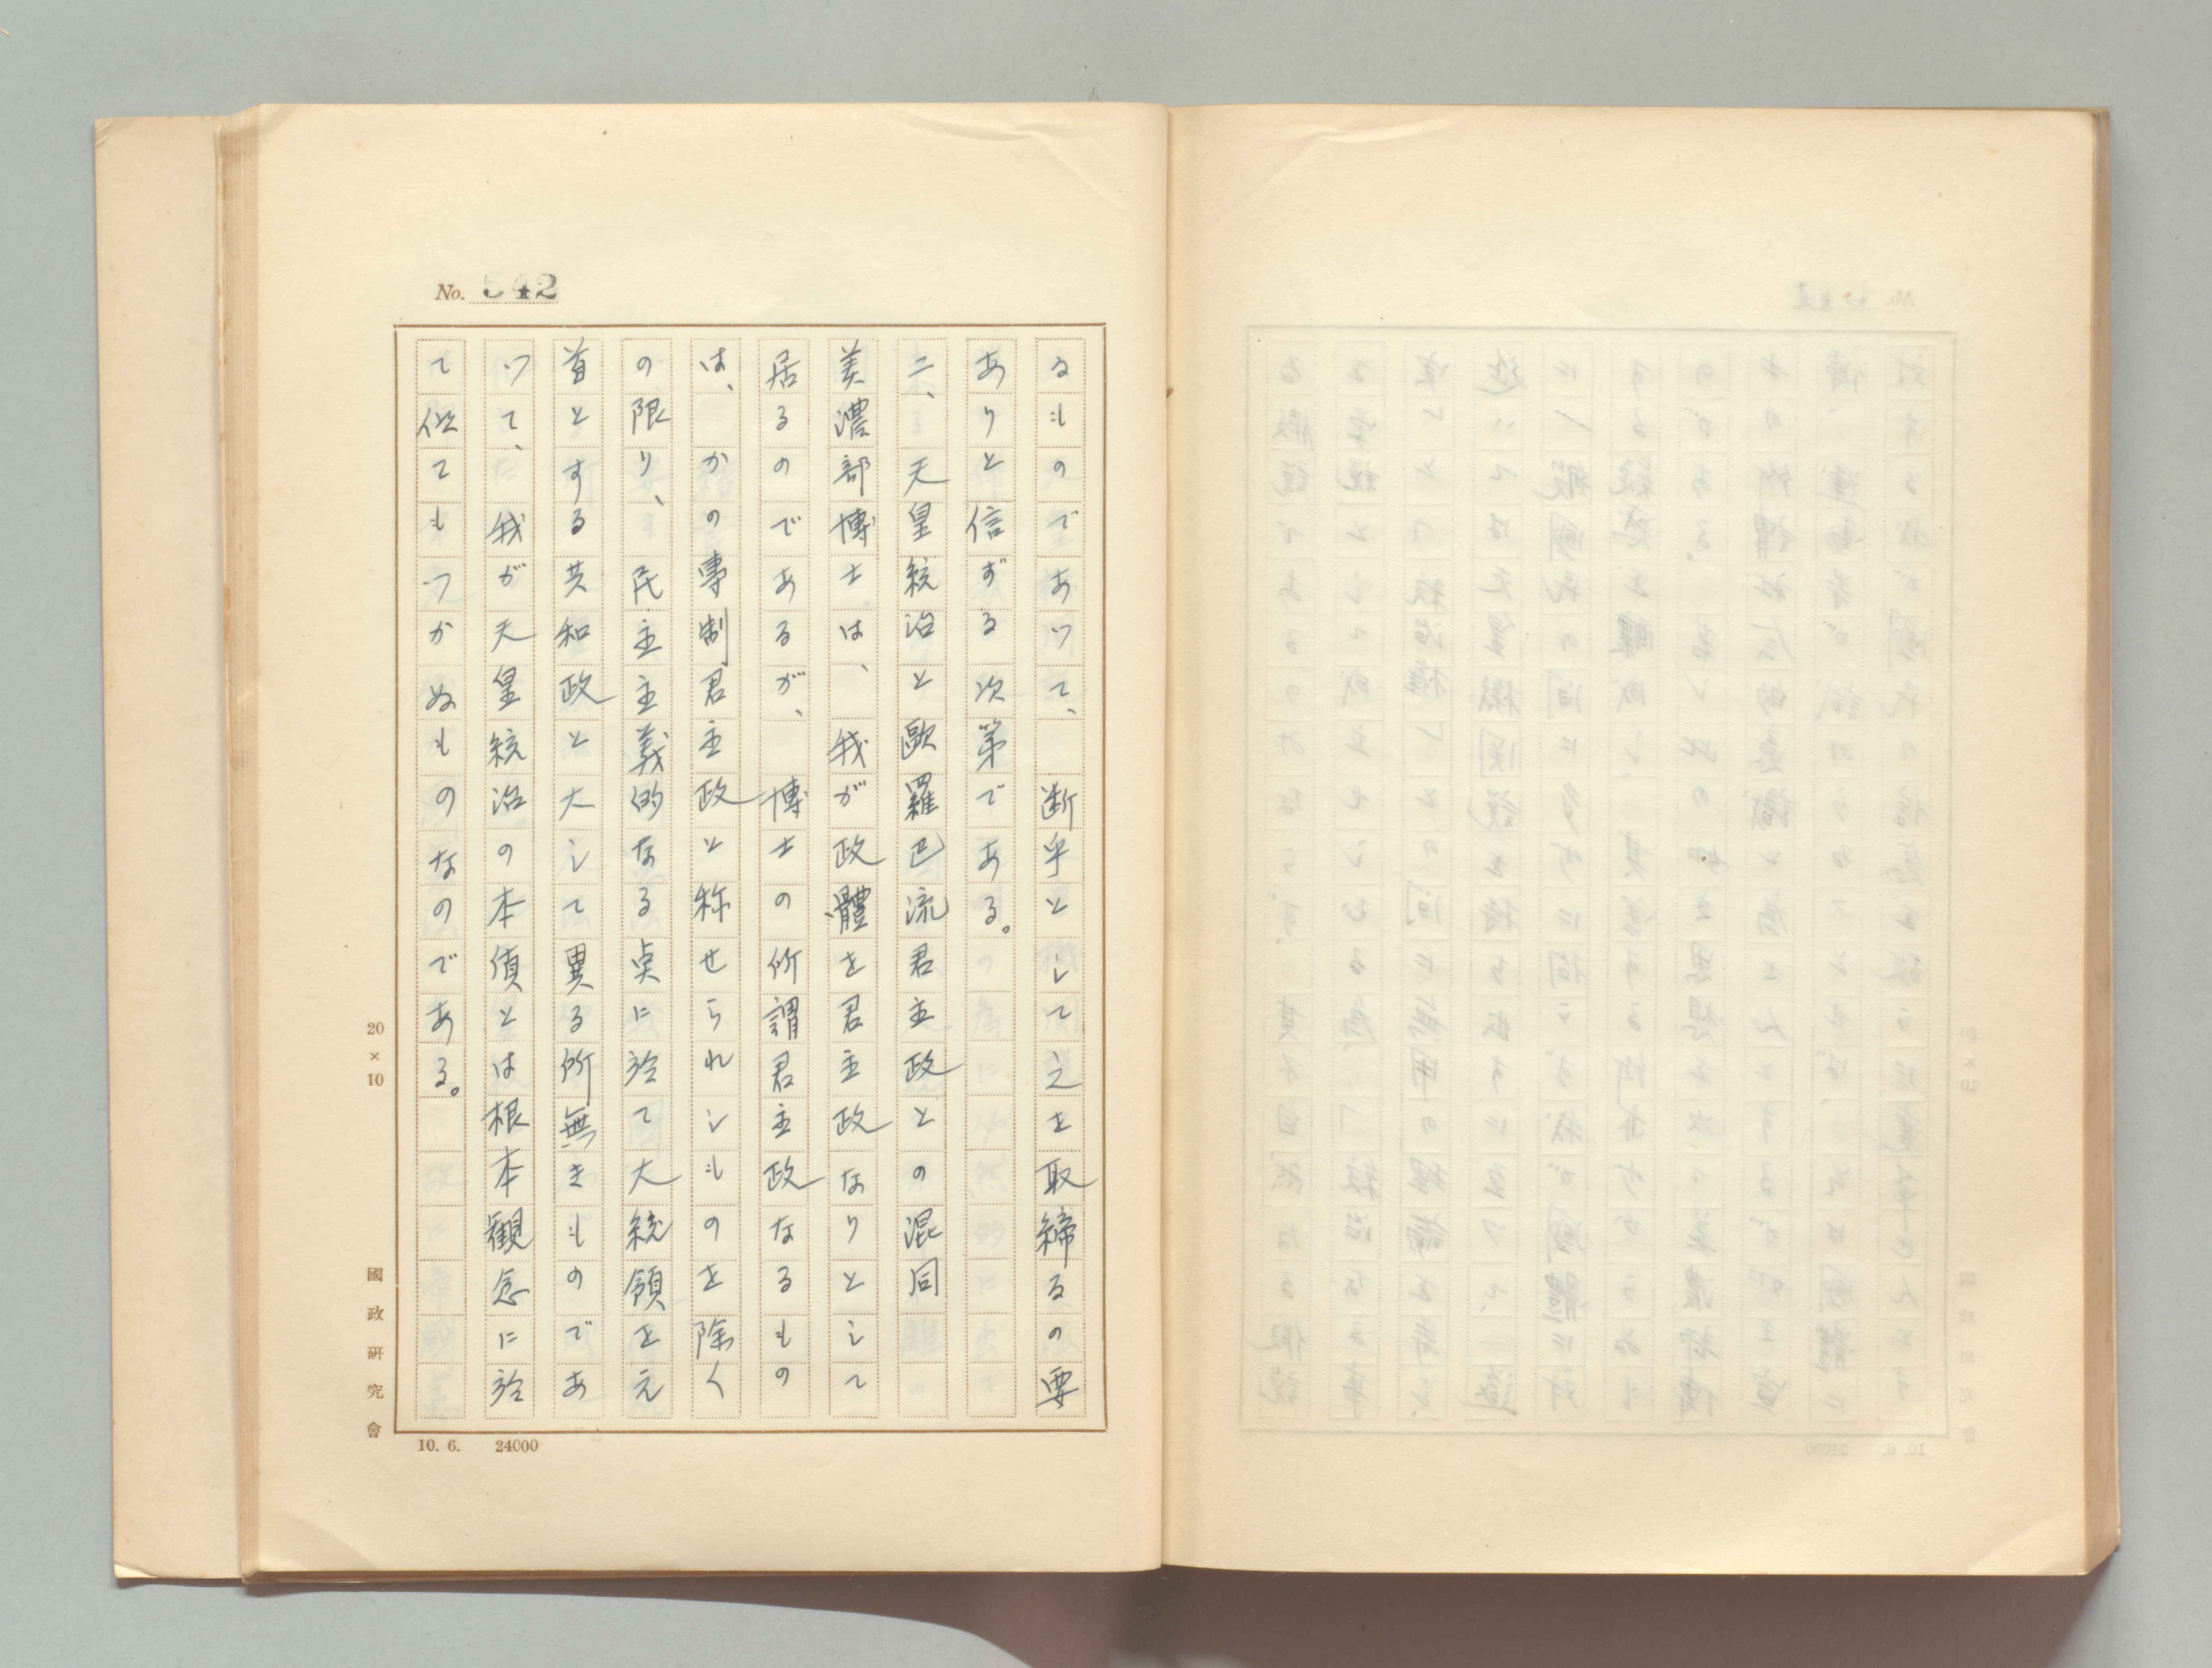 No. 542
るものであつて、断乎として之を取締るの要
ありと信ずる次第である。
二、天皇統治と歐羅巴流君主政との混同
美濃部博士は、我が政體を君主政なりとして
居るのであるが、博士の所謂君主政なるもの
は、かの專制君主政と称せられしものを除く
の限り、民主主義的なる点に於て大統領を元
首とする共和政と大して異る所無きものであ
つて、我が天皇統治の本質とは根本観念に於
て似てもつかぬものなのである。
20×10
國政研究會
10. 6. 24000